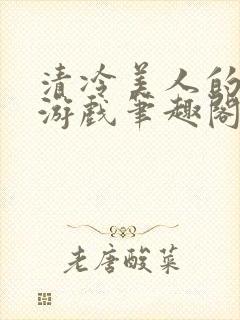 清冷美人的
游戏笔趣阁
老唐酸菜